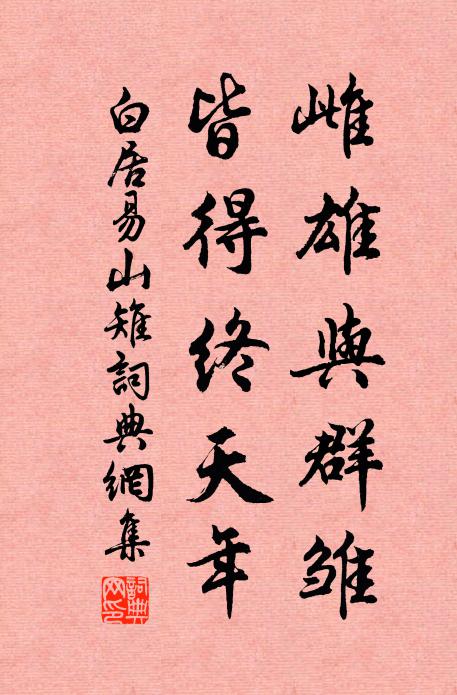 雌雄與群雛
皆得終天年
白居易山雉詞典網集
詞典网印